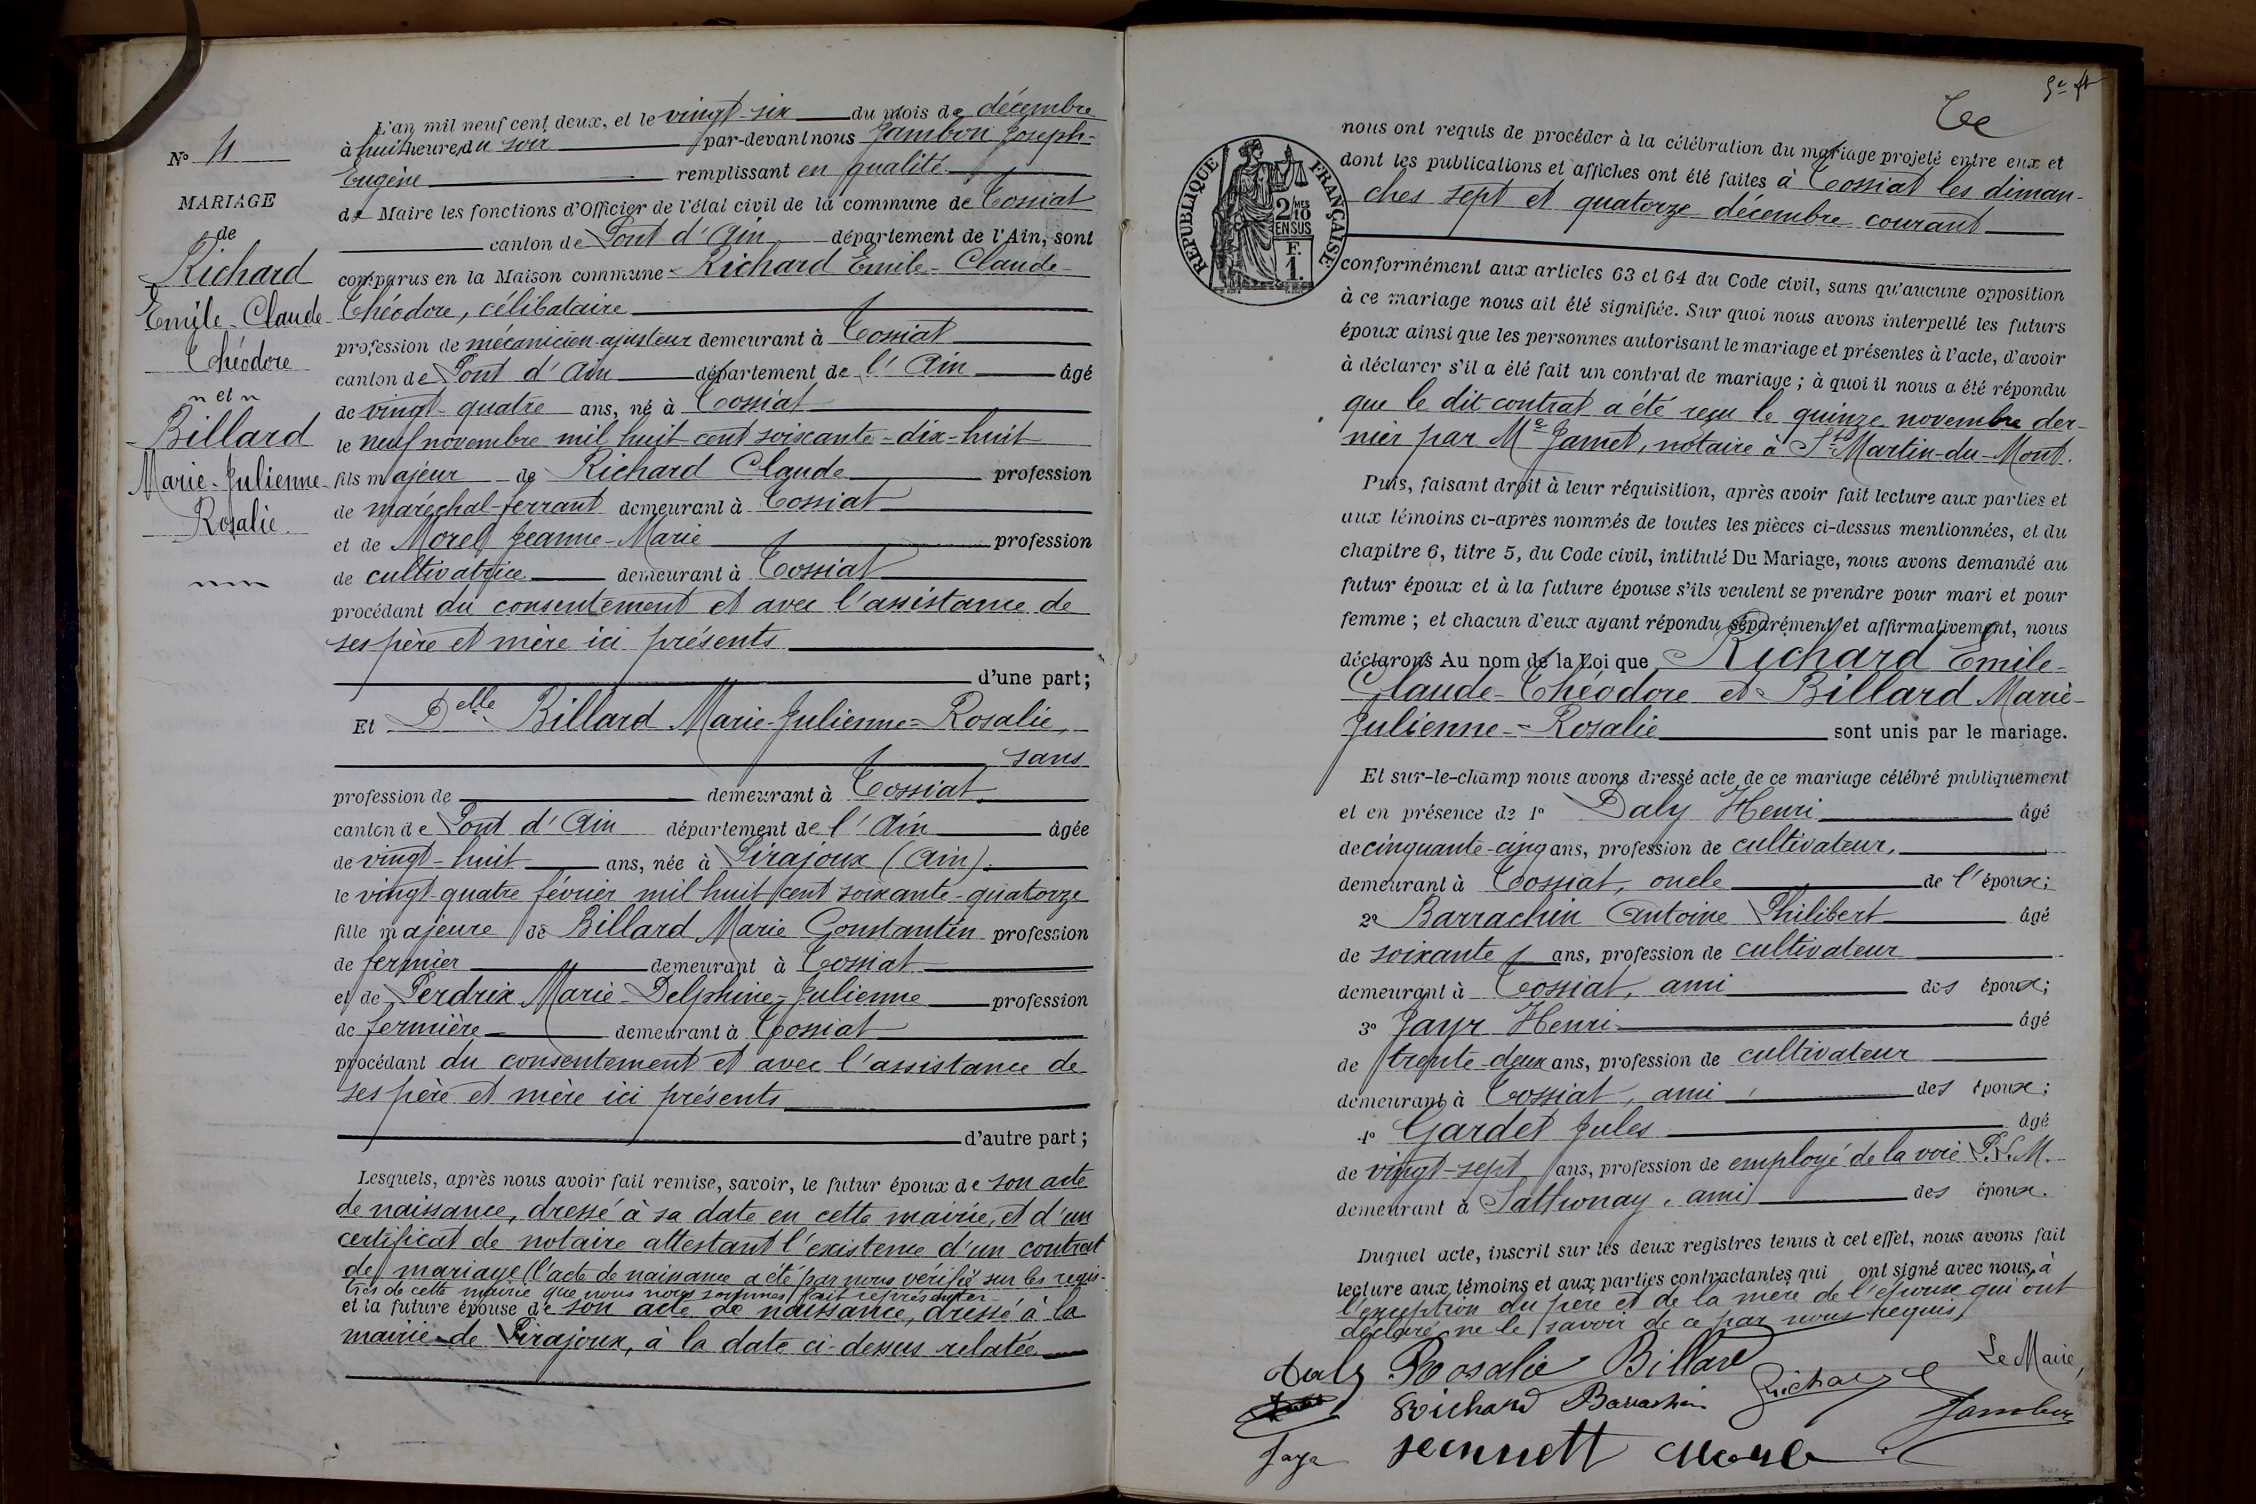 L'an mil neuf cent deux, et le vingt-six du mois de décembre
à huit heures du soir par-devant nous Jambon Joseph-
Eugène remplissant en qualité
de Maire les fonctions d'Officier de l'état civil de la commune de Tossiat
canton de Pont d'Ain département de l'Ain, sont
comparus en la Maison commune Richard Emile-Claude-
Théodore, célibataire
profession de mécanicien-ajusteur demeurant à Tossiat
canton de Pont d'Ain département de l'Ain âgé
de vingt-quatre ans, né à Tossiat
le neuf novembre mil huit cent soixante-dix-huit
fils majeur de Richard Claude profession
de maréchal-ferrant demeurant à Tossiat
et de Morel Jeanne-Marie profession
de cultivatrice demeurant à Tossiat
procédant du consentement et avec l'assistance de
ses père et mère ici présents
d'une part;
Et Delle Billard Marie-Julienne-Rosalie,
sans
profession de demeurant à Tossiat
canton de Pont d'Ain département de l'Ain âgée
de vingt-huit ans, née à Pirajoux (Ain)
le vingt-quatre février mil huit cent soixante-quatorze
fille majeure de Billard Marie Constantin profession
de fermier demeurant à Tossiat
et de Perdrix Marie-Delphine-Julienne profession
de fermière demeurant à Tossiat
procédant du consentement et avec l'assistance de
ses père et mère ici présents
d'autre part;
Lesquels, après nous avoir fait remise, savoir, le futur époux de son acte
de naissance, dressé à sa date en cette mairie, et d'un
certificat de notaire attestant l'existence d'un contrat
de mariage (l'acte de naissance a été par nous vérifié sur les regis-
tres de cette mairie que nous nous sommes fait représenter
et la future épouse de son acte de naissance, dressé à la
mairie de Pirajoux, à la date ci-dessus relatée
N° 4
MARIAGE
de
Richard
Emile-Claude-
Théodore
et
Billard
Marie-Julienne-
Rosalie
nous ont requis de procéder à la célébration du mariage projeté entre eux et
dont les publications et affiches ont été faites à Tossiat les diman-
ches sept et quatorze décembre courant
RÉPUBLIQUE FRANÇAISE
2/10 MES
EN SUS
F.
1.
conformément aux articles 63 et 64 du Code civil, sans qu'aucune opposition
à ce mariage nous ait été signifiée. Sur quoi nous avons interpellé les futurs
époux ainsi que les personnes autorisant le mariage et présentes à l'acte, d'avoir
à déclarer s'il a été fait un contrat de mariage; à quoi il nous a été répondu
que le dit contrat a été reçu le quinze novembre der-
nier par Me Jamet, notaire à St Martin-du-Mont.
Puis, faisant droit à leur réquisition, après avoir fait lecture aux parties et
aux témoins ci-après nommés de toutes les pièces ci-dessus mentionnées, et du
chapitre 6, titre 5, du Code civil, intitulé Du Mariage, nous avons demandé au
futur époux et à la future épouse s'ils veulent se prendre pour mari et pour
femme; et chacun d'eux ayant répondu séparément et affirmativement, nous
déclarons Au nom de la Loi que Richard Emile-
Claude-Théodore et Billard Marie-
Julienne-Rosalie sont unis par le mariage.
Et sur-le-champ nous avons dressé acte de ce mariage célébré publiquement
et en présence de 1° Daly Henri âgé
de cinquante-cinq ans, profession de cultivateur,
demeurant à Tossiat, oncle de l'époux;
2° Barrachin Antoine Philibert âgé
de soixante ans, profession de cultivateur
demeurant à Tossiat, ami des époux;
3° Jayr Henri âgé
de trente-deux ans, profession de cultivateur
demeurant à Tossiat, ami des époux;
4° Gardet Jules âgé
de vingt-sept ans, profession de employé de la voie P.L.M.
demeurant à Sathonay, ami des époux.
Duquel acte, inscrit sur les deux registres tenus à cet effet, nous avons fait
lecture aux témoins et aux parties contractantes qui ont signé avec nous, à
l'exception du père et de la mère de l'épouse qui ont
déclaré ne le savoir de ce par nous requis
Le Maire,
Daly Rosalie Billard Richard
Richard Barrachin Jambon
Jayr Jeannett Morel